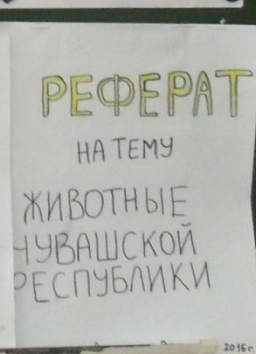 РЕФЕРАТ
НА ТЕМУ
ЖИВОТНЫЕ
ЧУВАШСКОЙ
РЕСПУБЛИКИ
2016 г.